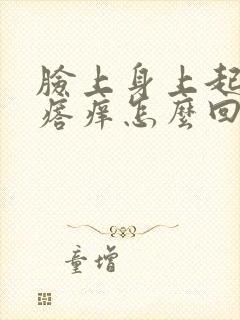 臉上身上起
痞痒怎麼回
童增